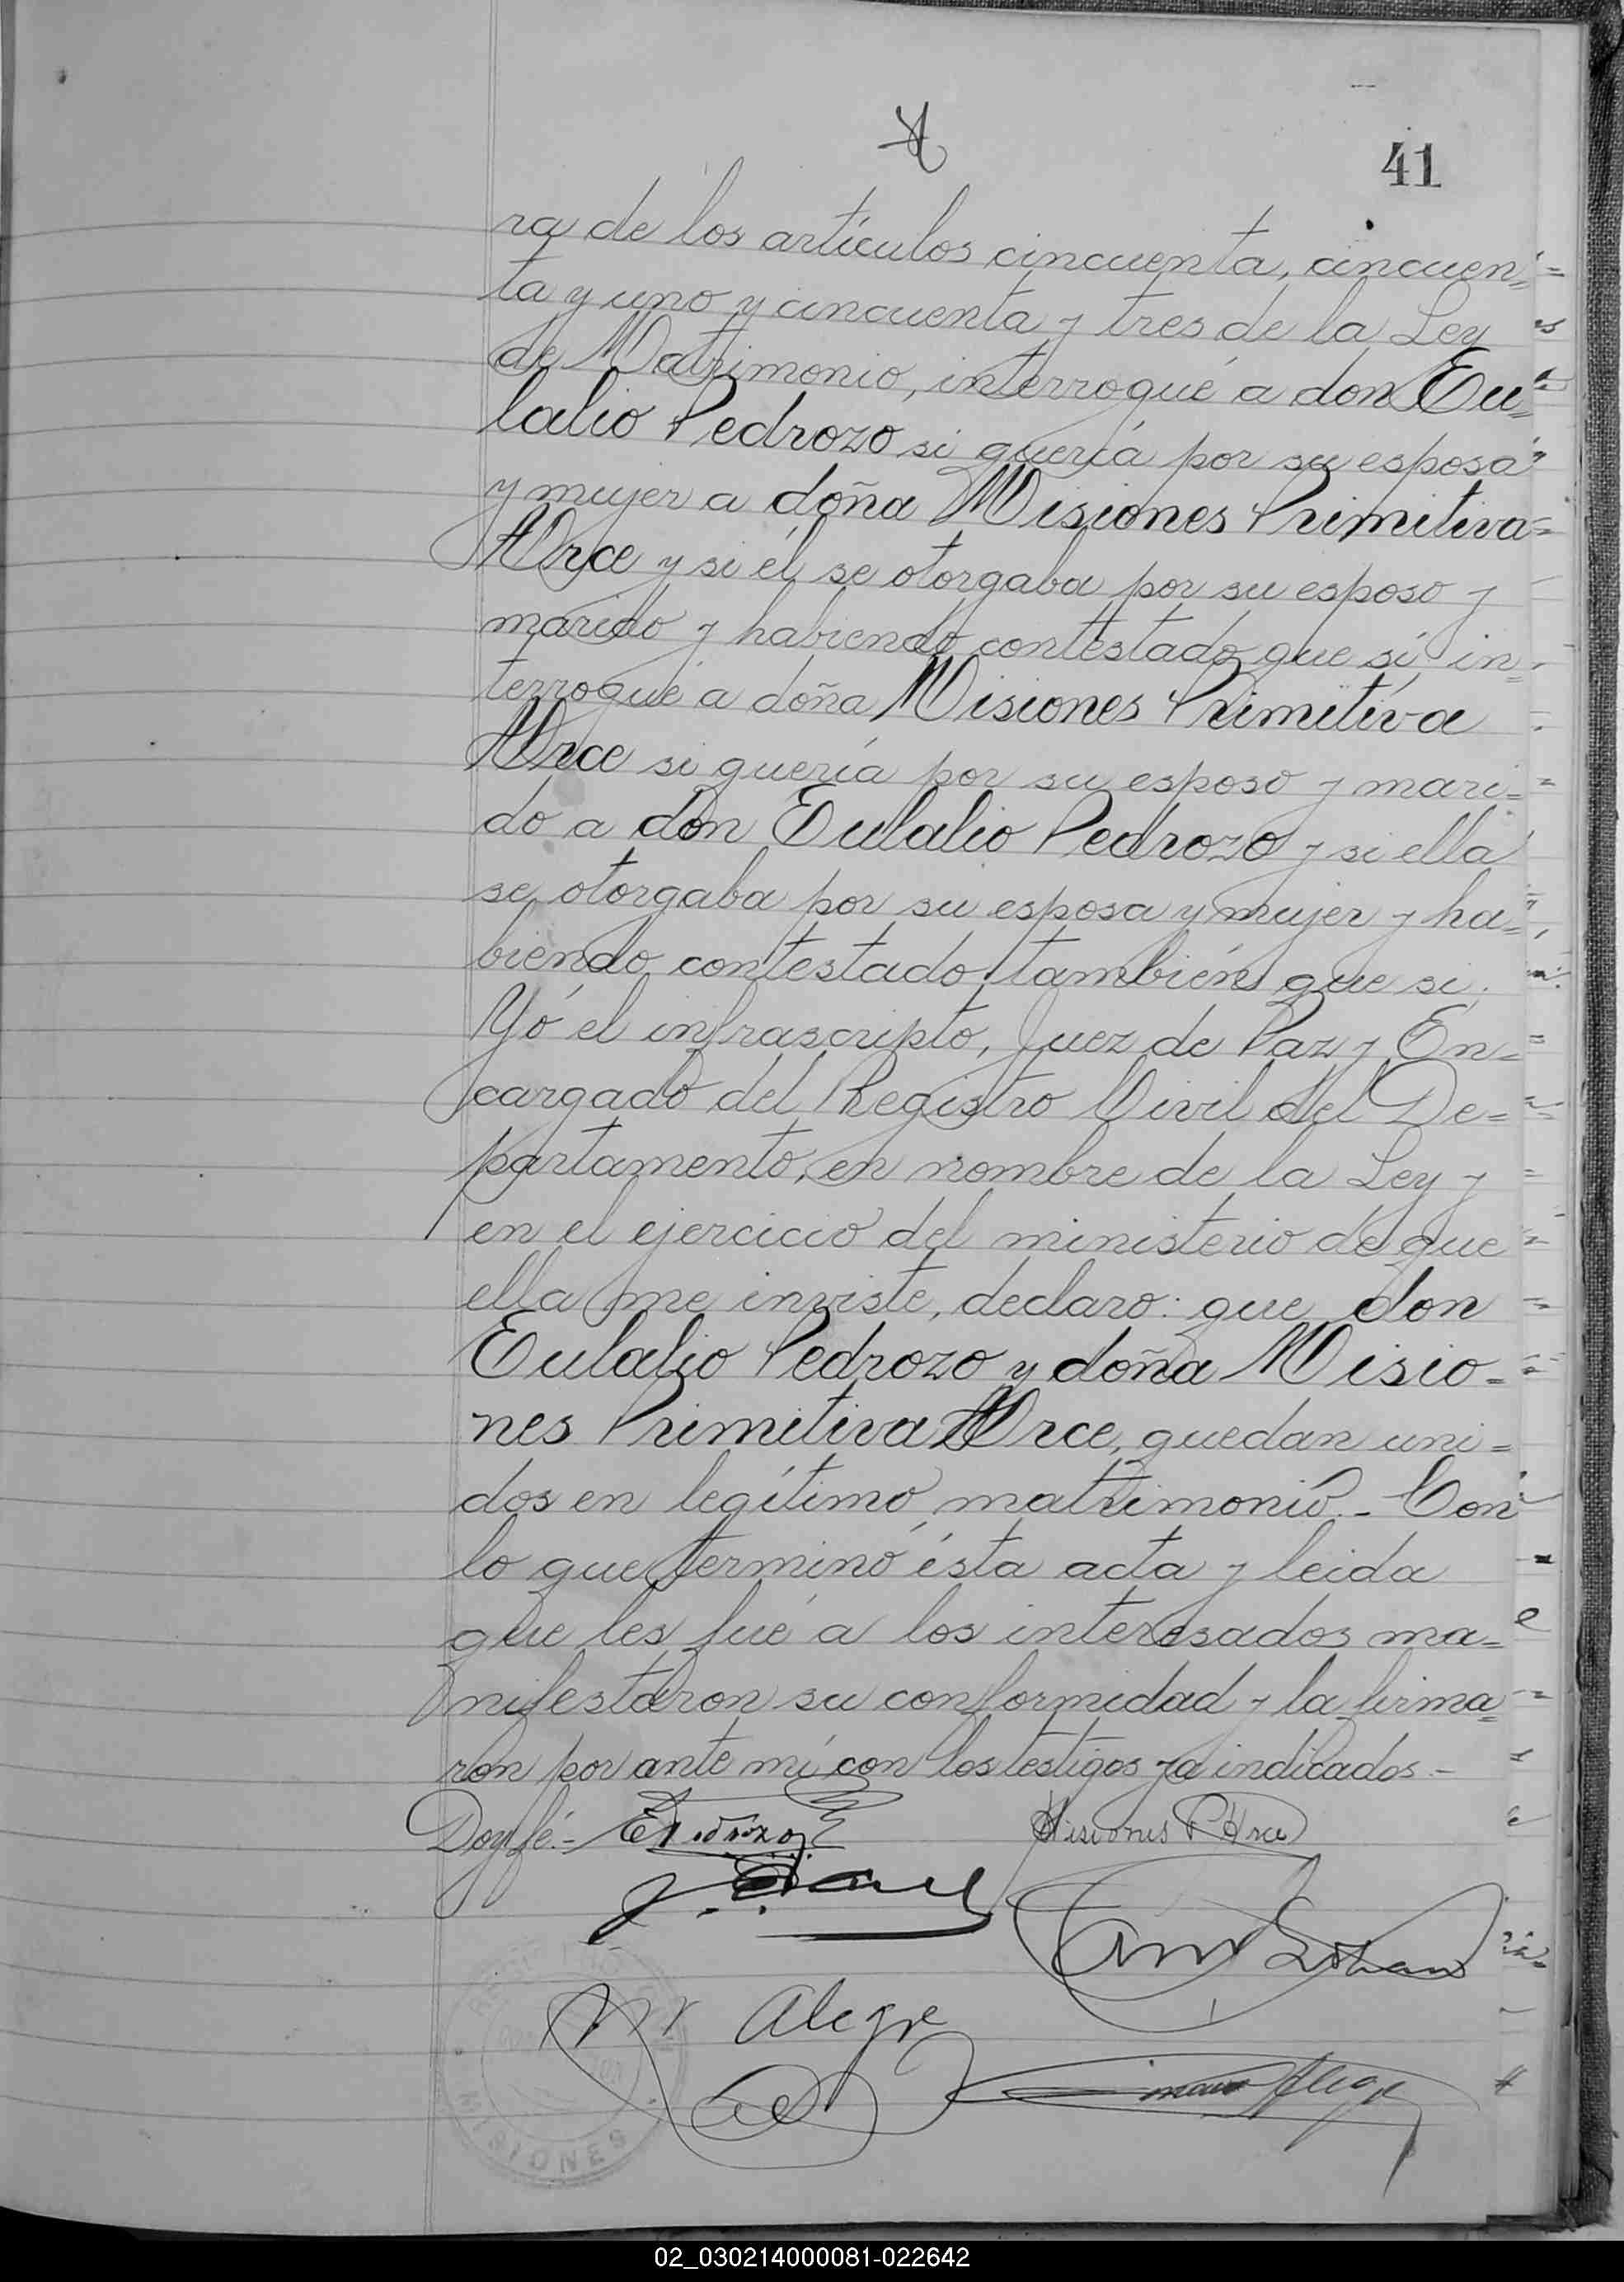 41
ra de los artículos cincuenta, cincuen=
ta y uno y cincuenta y tres de la Ley
de Matrimonio, interrogué a don Eu=
lalio Pedrozo si quería por su esposa
y mujer a doña Misiones Primitiva
Arce y si él se otorgaba por su esposo y
marido y habiendo contestado que sí in=
terrogué a doña Misiones Primitiva
Arce si quería por su esposo y mari=
do a don Eulalio Pedrozo y si ella
se otorgaba por su esposa y mujer y ha=
biendo contestado también que si.
Yó el infrascripto, Juez de Paz y En=
cargado del Registro Civil del De=
partamento, en nombre de la Ley y
en el ejercicio del ministerio de que
ella me inviste, declaro: que don
Eulalio Pedrozo y doña Misio=
nes Primitiva Arce, quedan uni=
dos en legítimo matrimonio.- Con
lo que terminó ésta acta y leida
que les fué a los interesados ma=
nifestaron su conformidad y la firma=
ron por ante mí con los testigos ya indicados.-
Doy fé.- E Pedrozo Misiones P Arce
Alegre
Alegre
MISIONES
02_030214000081-022642